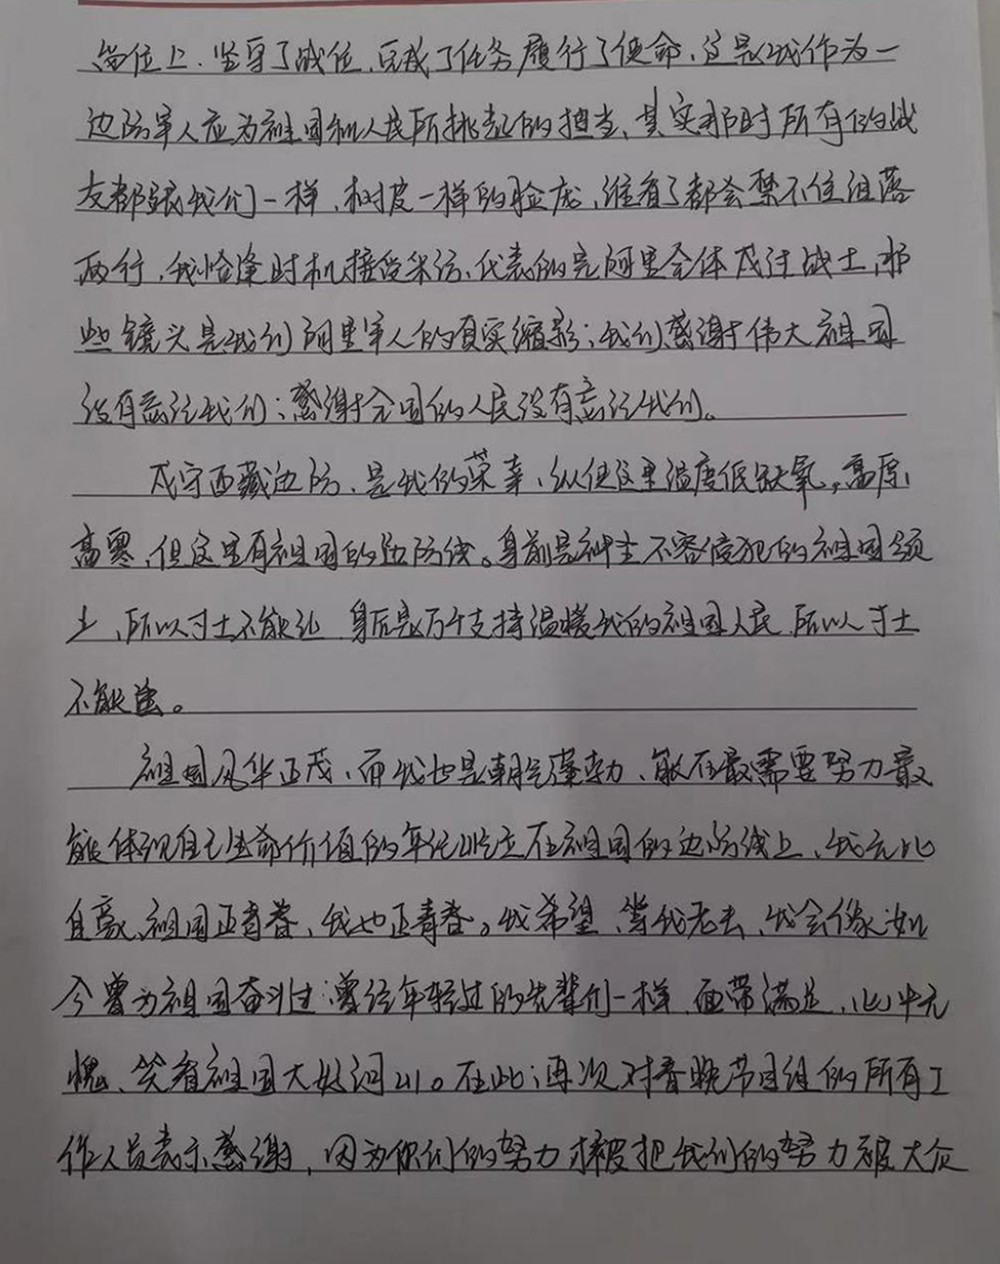 岗位上、坚守了战位、完成了任务履行了使命、这是我作为一
边防军人应为祖国和人民所挑起的担当、其实那时所有的战
友都跟我们一样、树皮一样的脸庞、谁看了都会禁不住泪落
两行、我恰逢时机接受采访、代表的是阿里全体戍边战士、那
些镜头是我们阿里军人的真实缩影；我们感谢伟大祖国
没有忘记我们；感谢全国的人民没有忘记我们。
戍守西藏边防、是我的荣幸、纵但这里温度低缺氧，高原、
高寒、但这里有祖国的边防线。身前是神圣不容侵犯的祖国领
土、所以寸土不能让 身后是万千支持温暖我的祖国人民 所以寸土
不能丢。
祖国风华正茂、而我也是朝气蓬勃、能在最需要努力最
能体现自己生命价值的年纪屹立在祖国的边防线上、我无比
自豪、祖国正青春、我也正青春。我希望、等我老去、我会像如
今曾为祖国奋斗过；曾经年轻过的先辈们一样、面带满足、心中无
愧、笑看祖国大好河山。在此；再次对春晚节目组的所有工
作人员表示感谢、因为你们的努力才被把我们的努力被大众